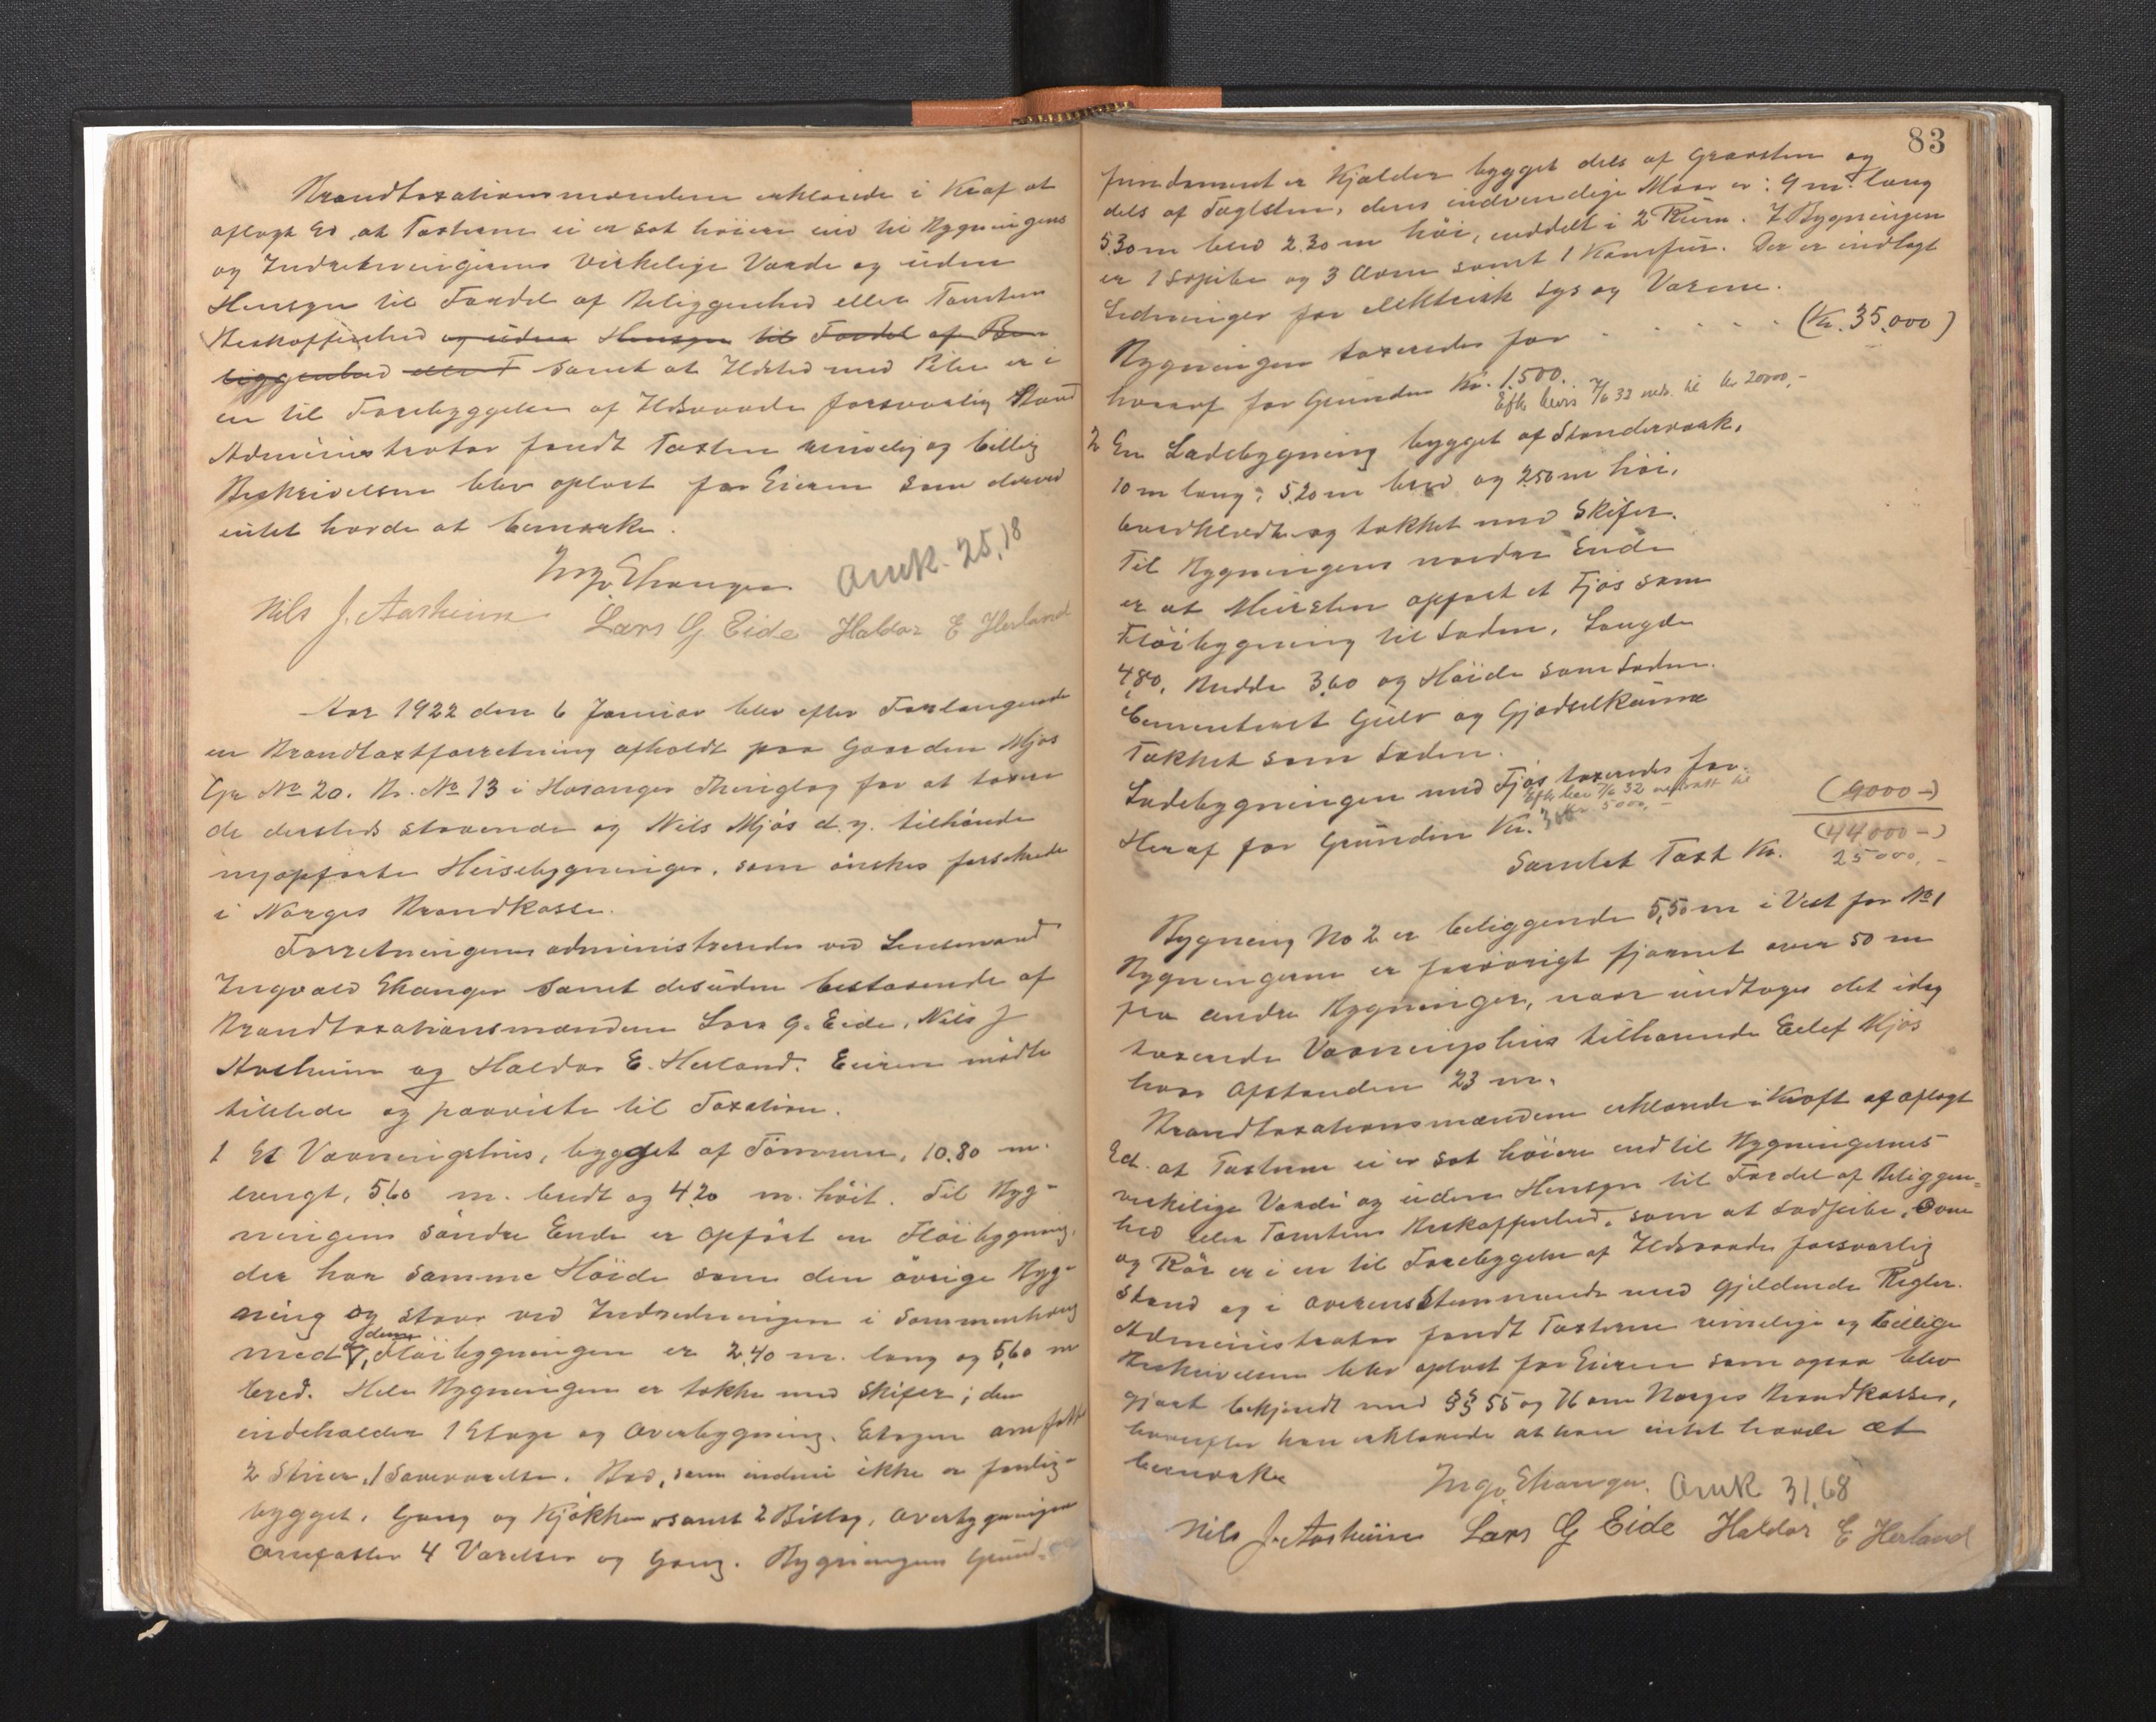 Brandtaxationsmændene erklærede i Kraf at
aflagt Ed at Taxterne ei er sat høiere end til Bygningens
og Indretningernes virkelige Værde og uden
Hensyn til Fordel af Beliggenhed eller Tomtens
Beskaffenhed og uden Hensyn til Fordel af Be-
liggenhed eller T samt at Ildsted med Piber er i
en til Forebyggelse af Ildsvaade forsvarlig Stand
Administrator fandt Taxten rimelig og billig
Beskrivelsen blev oplæst for Eieren som derved
intet havde at bemærke.
Ingv. Ekanger Omk. 25,18
Nils J. Aasheim Lars G Eide Haldor E Herland
Aar 1922 den 6 Januar blev efter Forlangende
en Brandtaxtforretning afholdt paa Gaarden Mjøs
Gr No 20. Br. No 13 i Hosanger Thinglag for at taxere
de dersteds staaende og Nils Mjøs d.y. tilhørende
nyopførte Huisebygninger, som ønskes forsikrede
i Norges Brandkasse.
Forretningen administreredes ved Lensmand
Ingvald Ekanger samt desuden bestaaende af
Brandtaxationsmændene Lars G. Eide, Nils J
Aasheim og Haldor E. Herland. Eieren mødte
tilstede og paaviste til Taxation.
1 Et Vaaningshus, bygget af Tømmer, 10.80 m.
langt, 5,60 m. bredt og 4,20 m. høit. Til Byg-
ningens søndre Ende er opført en Fløibygning,
der har samme Høide som den øvrige Byg-
ning og staar ved Indredningen i Sammenhæng
med denne, Fløibygningen er 2,40 m. lang og 5,60 m
bred. Hele Bygningen er tækket med Skifer; den
indeholder 1 Etage og Overbygning. Etagen omfatter
2 Stuer, 1 Soveværelse, Bad, som endnu ikke er færdig-
bygget, Gang og Kjøkken samt 2 Bislag, Overbygningen
omfatter 4 Værelser og Gang. Bygningens Grund-
83
fundament er Kjælder bygget dels af Graasten og
dels af Taglsten, dens indvendige Maar er: 9 m. lang
5,30 m bred 2.30 m høi, inddelt i 2 Rum. I Bygningen
er 1 Sopibe og 3 Ovne samt 1 Komfur. Der er indlagt
Ledninger for elektrisk Lys og Varme.
Bygningen taxeredes for . . . . . (Kr. 35.000)
hvoraf for Grunden Kr. 1.500.
Efter bevis 7/6 32 neds. til kr 20000,-
2 En Ladebygning bygget af Standerværk,
10 m lang, 5,20 m bred og 2,50 m høi,
bordklædt og tækket med Skifer.
Til Bygningens nordre Ende
er at Mursten opført et Fjøs som
Fløibygning til Laden, Længde
4,80, Bredde 3,60 og Høide som Laden.
Cementeret Gulv og Gjødselkum
Tækket som Laden.
Ladebygningen med Fjøs taxeredes for. (9000-)
Efter bev 7/6 32 nedsatt til
kr. 5000,-
Heraf for Grunden Kr. 300
Samlet Taxt Kr. (44.000-)
25000,-
Bygning No 2 er beliggende 5,50 m i Vest for No 1
Bygningerne er forøvrigt fjærnet over 50 m
fra andre Bygninger, naar undtages det idag
taxerede Vaaningshus tilhørende Eelef Mjøs
hvor Afstanden 23 m.
Brandtaxationsmændene erklærede i Kraft af aflagt
Ed. at Taxterne ei er sat høiere end til Bygningernes
virkelige Værdi og uden Hensyn til Fordel af Beliggen=
hed eller Tomtens Beskaffenhed, som at Sodpibe, Ovne
og Rør er i en til Forebyggelse af Ildsvaade forsvarlig
Stand og i Overensstemmende med gjeldende Regler.
Administrator fandt Taxterne rimelige og billige
Beskrivelsen blev oplæst for Eieren som ogsaa blev
gjort bekjendt med §§ 55 og 76 om Norges Brandkasse,
hvorefter han erklærede at han intet havde at
bemærke
Ingv. Ekanger. Omk 31,68
Nils J. Aasheim Lars G Eide Haldor E Herland